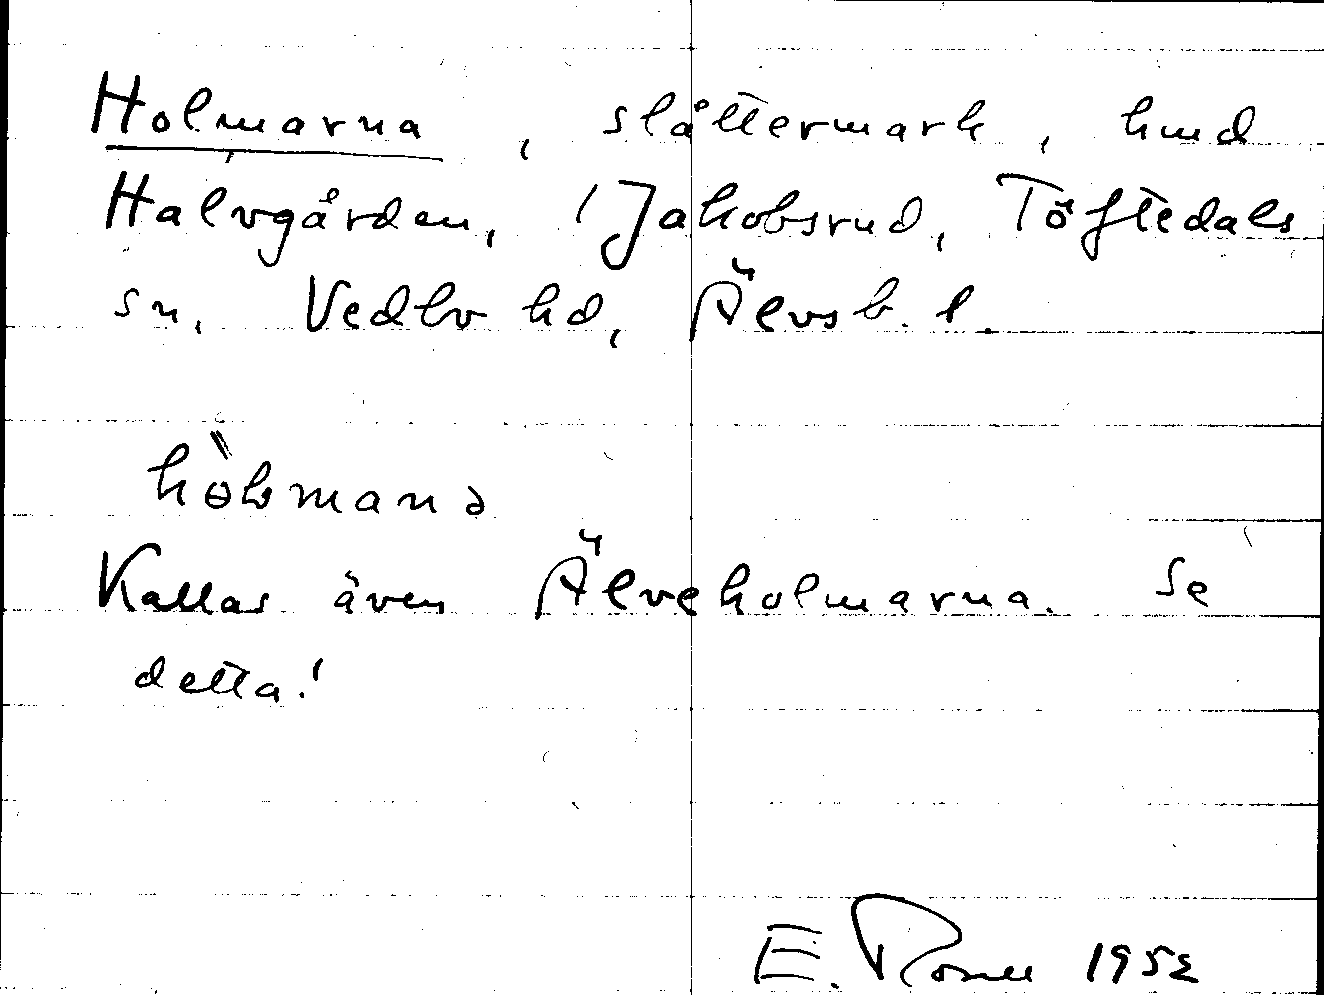 Holmarna, slåttermark, hmd
Halvgården, 1 Jakobsrud, Töftedals
sn, Vedbo hd, Älvsb. l.
Kallas även Älveholmarna. Se
detta!
E. 1952